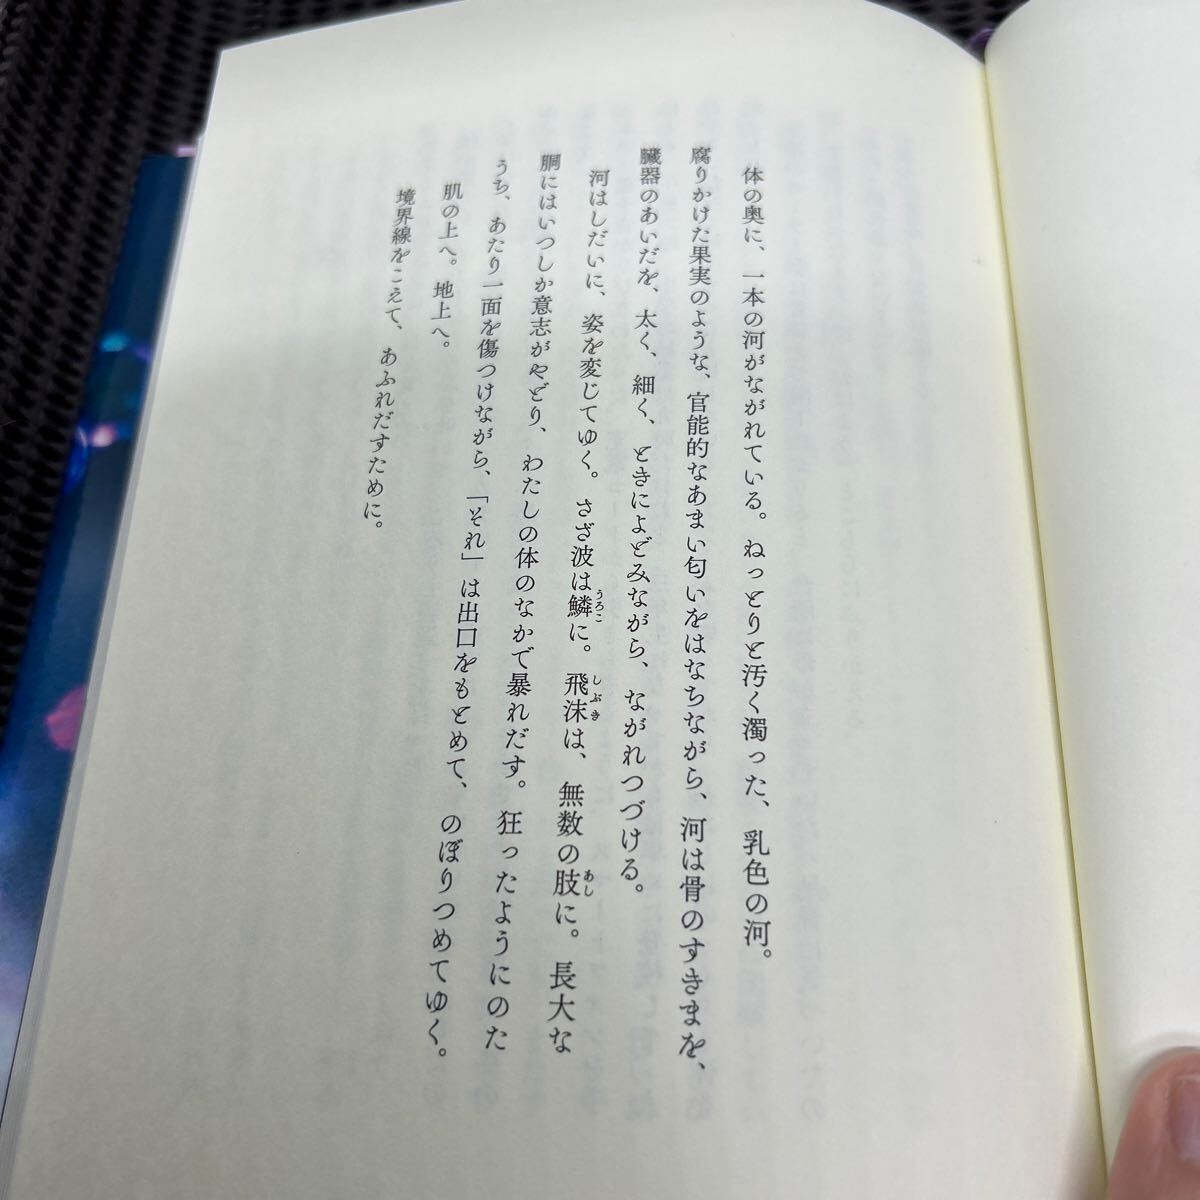 体の奥に、一本の河がながれている。ねっとりと汚く濁った、乳色の河。
腐りかけた果実のような、官能的なあまい匂いをはなちながら、河は骨のすきまを、
臓器のあいだを、太く、細く、ときによどみながら、ながれつづける。
河はしだいに、姿を変じてゆく。さざ波は鱗に。飛沫は、無数の肢に。長大な
胴にはいつしか意志がやどり、わたしの体のなかで暴れだす。狂ったようにのた
うち、あたり一面を傷つけながら、「それ」は出口をもとめて、のぼりつめてゆく。
肌の上へ。地上へ。
境界線をこえて、あふれだすために。